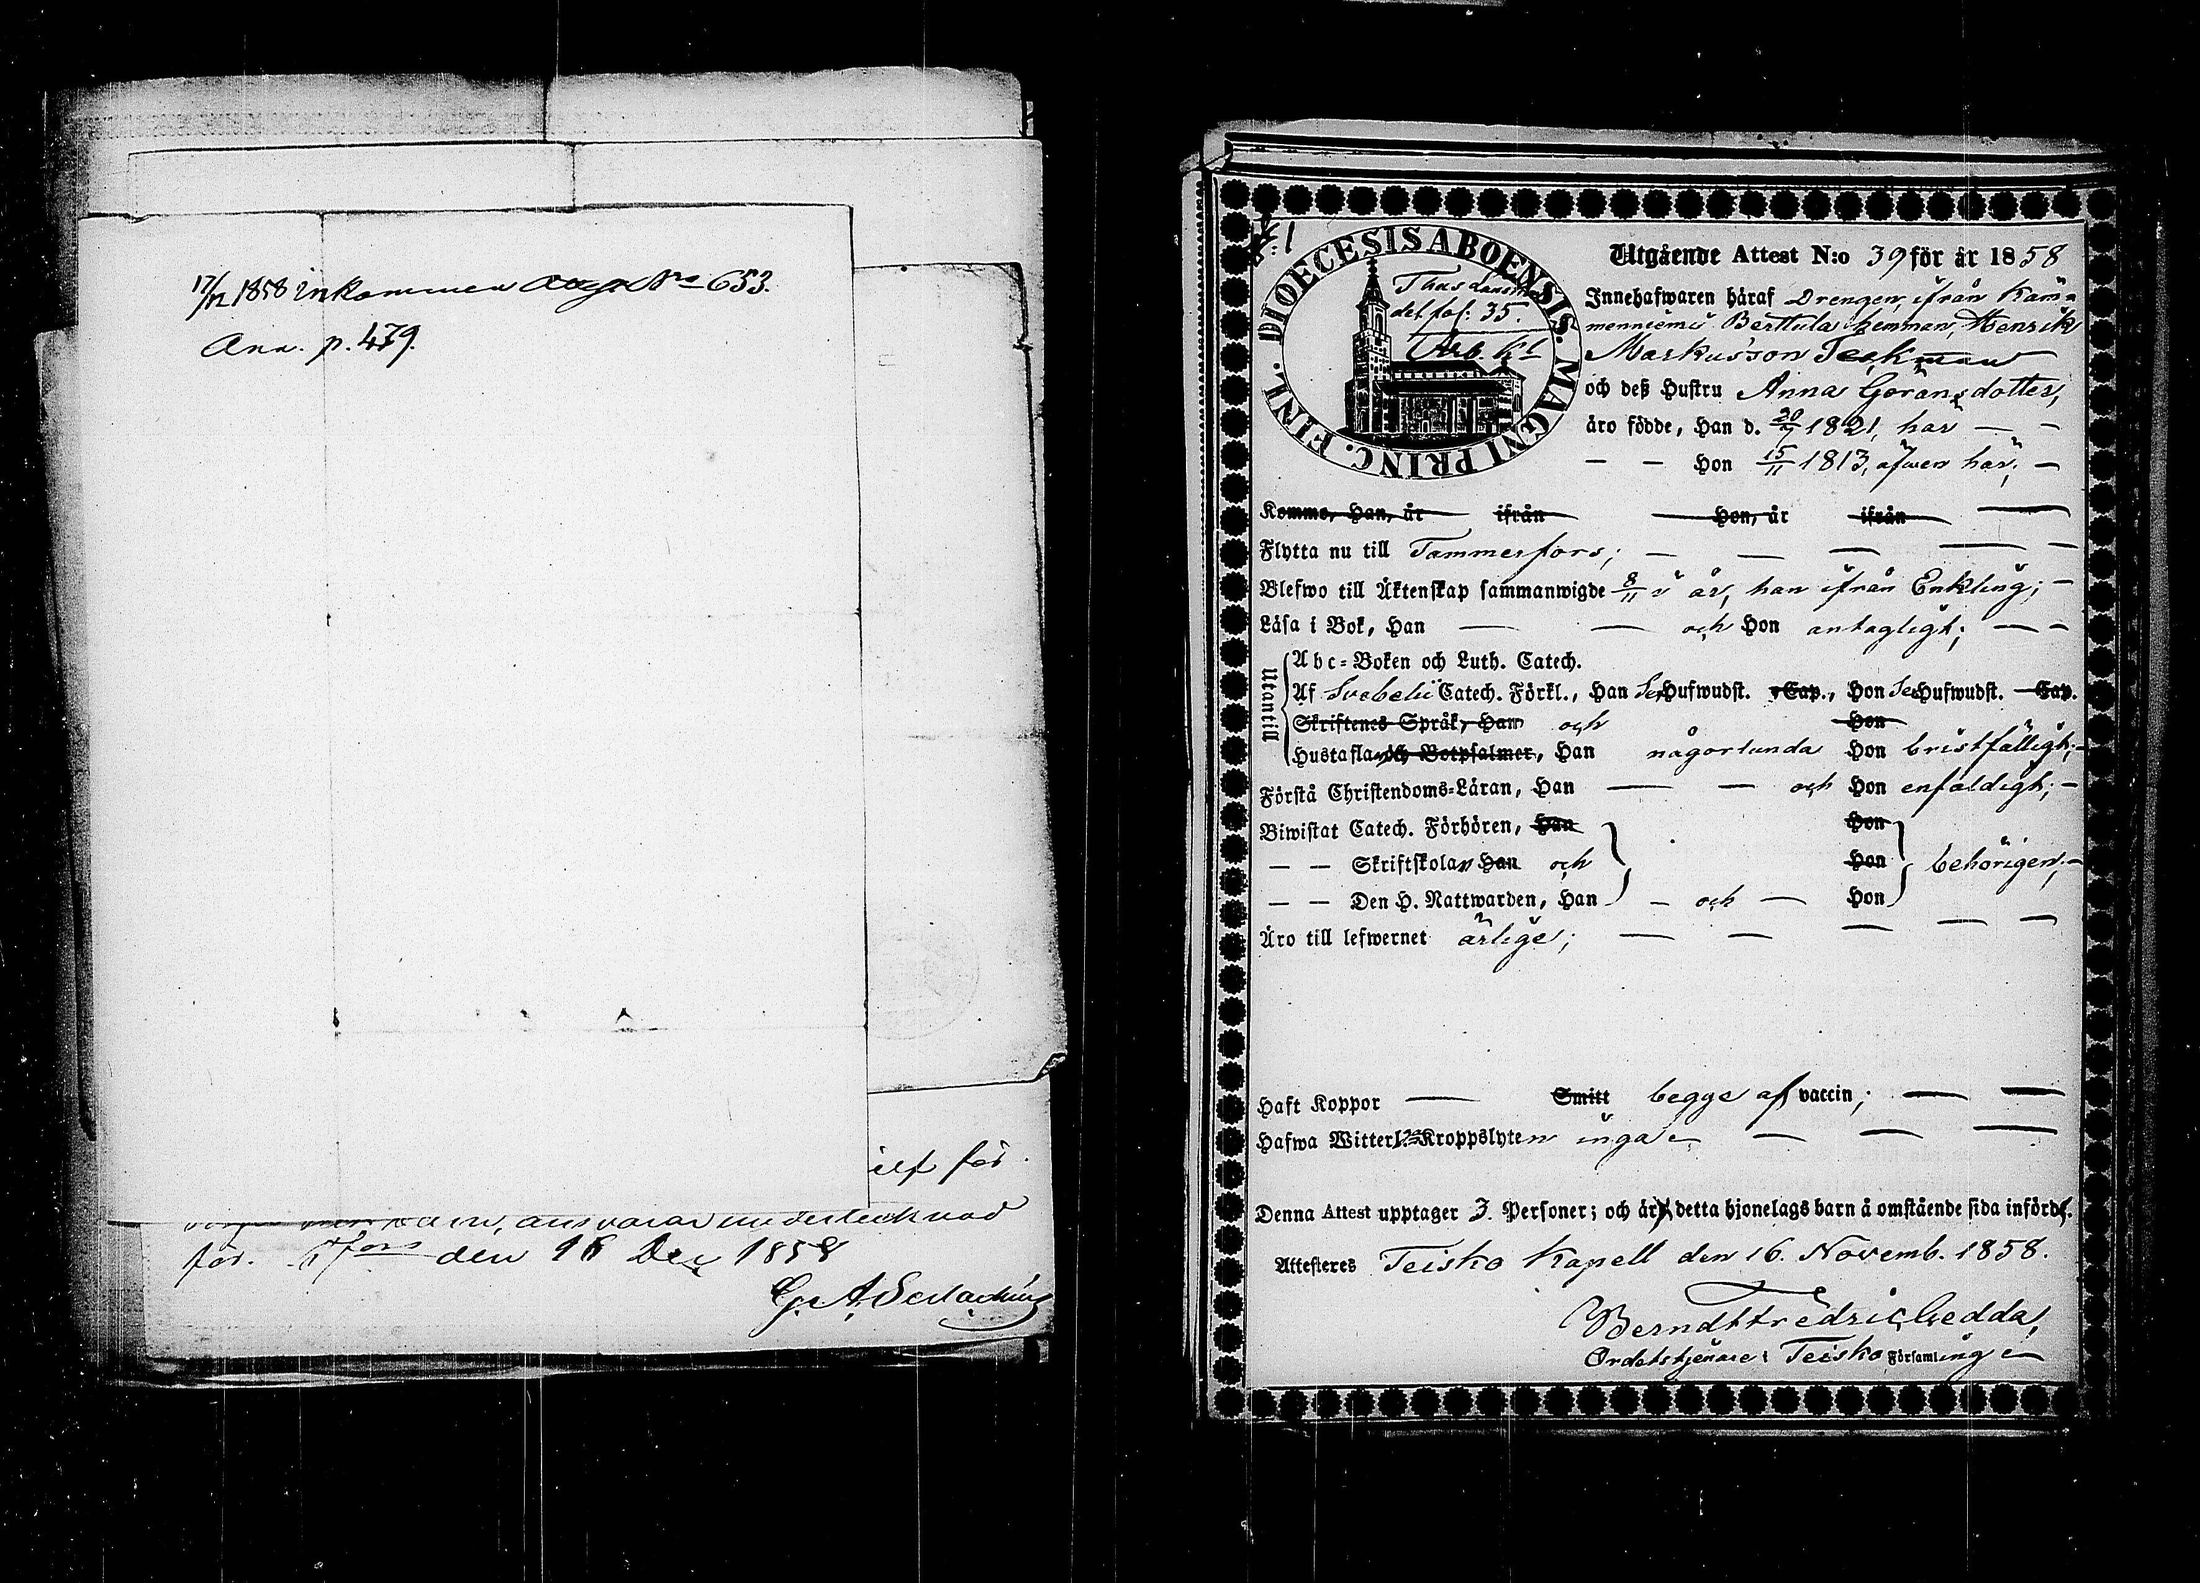 17/12 1858 inkommen No 653.
Ann. p. 479.
för
ansvarar undertecknad
för. Tfors den 16 Dec 1858
G. A.
DIOECESIS ABOENSIS. MAGNI PRINC. FINL.
det fol: 35.
Utgående Attest N:o 39 för år 1858
Innehafwaren häraf Drengen, ifrån Käm-
menniemi Berttula hemman, Henrik
Markusson Teckman
och deß Hustru Anna Göransdotter,
äro födde, Han d. 20/7 1821, här — —
— — Hon 15/11 1813, äfwen här; —
Komme, Han, år ifrån Hon, år ifrån —
Flytta nu till Tammerfors; — — — — —
Blefwo till Äktenskap sammanwigde 8/11 i år, han ifrån Enkling; —
Läsa i Bok, Han — — och Hon antagligt; — —
Utantill
Abc-Boken och Luth. Catech.
Af Svebelii Catech. Förkl., Han Sex Hufwudst. Cap., Hon Sex Hufwudst. Cap.
Skriftenes Språk, Han och Hon
Hustaflan och Botpsalmer, Han någorlunda Hon bristfälligt; —
Förstå Christendoms-Läran, Han — — och Hon enfaldigt; —
Biwistat Catech. Förhören, Han Hon
— — Skriftskolan Han och Hon behörigen; —
— — Den H. Nattwarden, Han — och — Hon
Äro till lefwernet ärlige; — — — — —
Haft Koppor — Smitt begge af vaccin; — —
Hafwa Witterl. Kroppslyten inga — — — —
Denna Attest upptager 3. Personer; och är detta hjonelags barn å omstående sida införd.
Attesteres Teisko Kapell den 16. Novemb. 1858.
Berndt Fredric Gedda,
Ordetstjenare i Teisko Församling